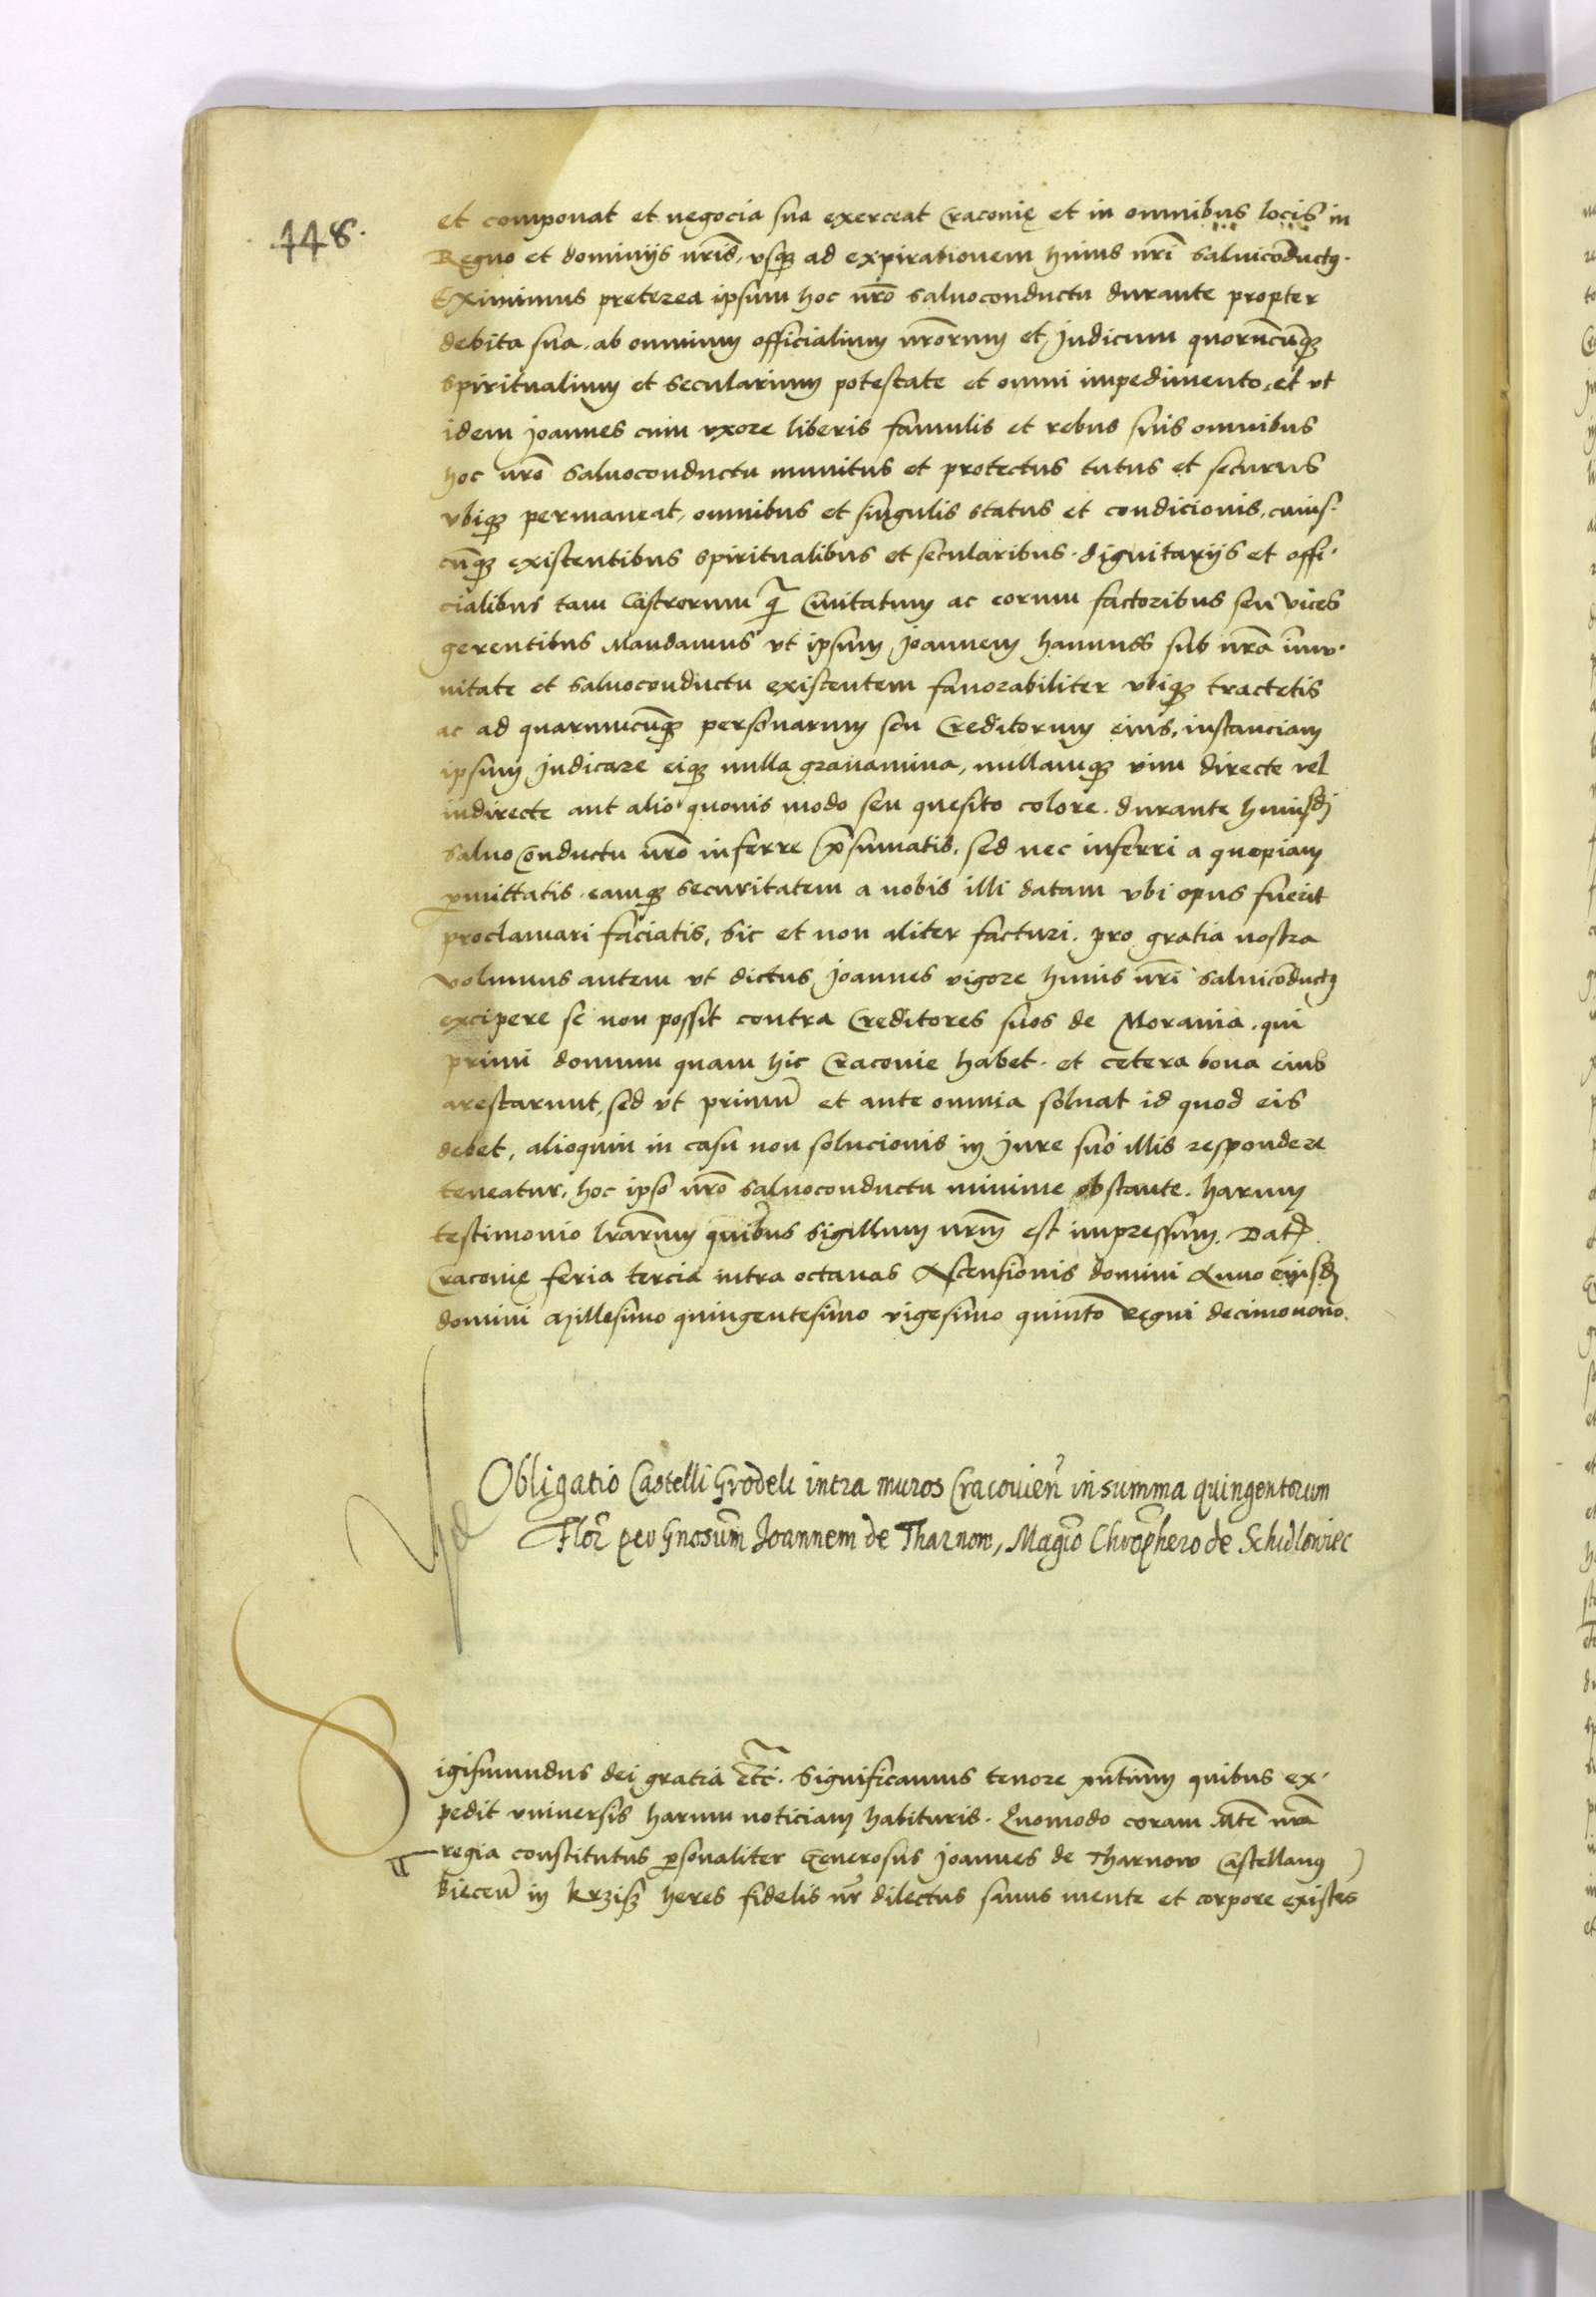 448.
et componat et negocia sua exerceat Cracovię et in omnibus locis in
Regno et dominijs nr̃is, vsq3 ad expirationem huius nr̃i saluicõductꝯ.
Eximimus preterea ipsum hoc nr̃o saluoconductu durante propter
debita sua. ab omnium officialium nr̃orum et Judicum quorũcũq3
spiritualium et secularium potestate et omni impedimento, et vt
idem Joannes cum vxore liberis famulis et rebus suis omnibus
hoc nr̃o saluoconductu munitus et protectus tutus et securus
vbiq3 permaneat, omnibus et singulis status et condicionis, cuius.
cũq3 existentibus spiritualibus et secularibus. dignitarijs et offi.
cialibus tam Castrorum q̃ Ciuitatum ac eorum factoribus seu vices
gerentibus Mandamus vt ipsum Joannem hannuss sub nr̃a immu.
nitate et saluoconductu existentem fauorabiliter vbiq3 tractetis
ac ad quarumcũq3 personarum seu Creditorum eius, instanciam
ipsum judicare eiq3 nulla grauamina, nullamq3 vim directe vel
indirecte aut alio quouis modo seu quesito colore. durante huiusdj
saluo Conductu nr̃o inferre p̃sumatis, sed nec inferri a quopiam
ꝑmittatis. eamq3 securitatem a nobis illi datam vbi opus fuerit
proclamari faciatis, sic et non aliter facturi. pro gratia nostra
volumus autem vt dictus Joannes vigore huius nr̃i saluicõductꝯ
excipere se non possit contra Creditores suos de Morauia. qui
primi domum quam hic Cracovie habet. et cetera bona eius
arestarunt, sed vt primũ et ante omnia soluat id quod eis
debet, alioquin in casu non solucionis in Jure suo illis respondere
teneatur, hoc ipso nr̃o saluoconductu minime obstante. harum
testimonio lr̃arum quibus sigillum nrm̃ est impressum. Datꝭ.
Cracovię feria tercia intra octauas Ascensionis domini Anno eiusdꝫ
domini Millesimo quingentesimo vigesimo quinto Regni decimonono.
Obligatio Castelli Grodek intra muros Cracouien̾ in summa quingentorum
Flor̃ per Gnosum̃ Joannem de Tharnow, Magc̃o Chrõphero de Schidlowiec
Sigismundus dei gratia etc̃. Significamus tenore pn̄tium quibus ex.
pedit vniuersis harum noticiam habituris. Quomodo coram Mt̃e nr̃a
regia constitutus ꝑsonaliter Generosus Joannes de Tharnow Castellanꝯ
biecen̾ in krzisz heres fidelis nr̃ dilectus sanus mente et corpore existẽs